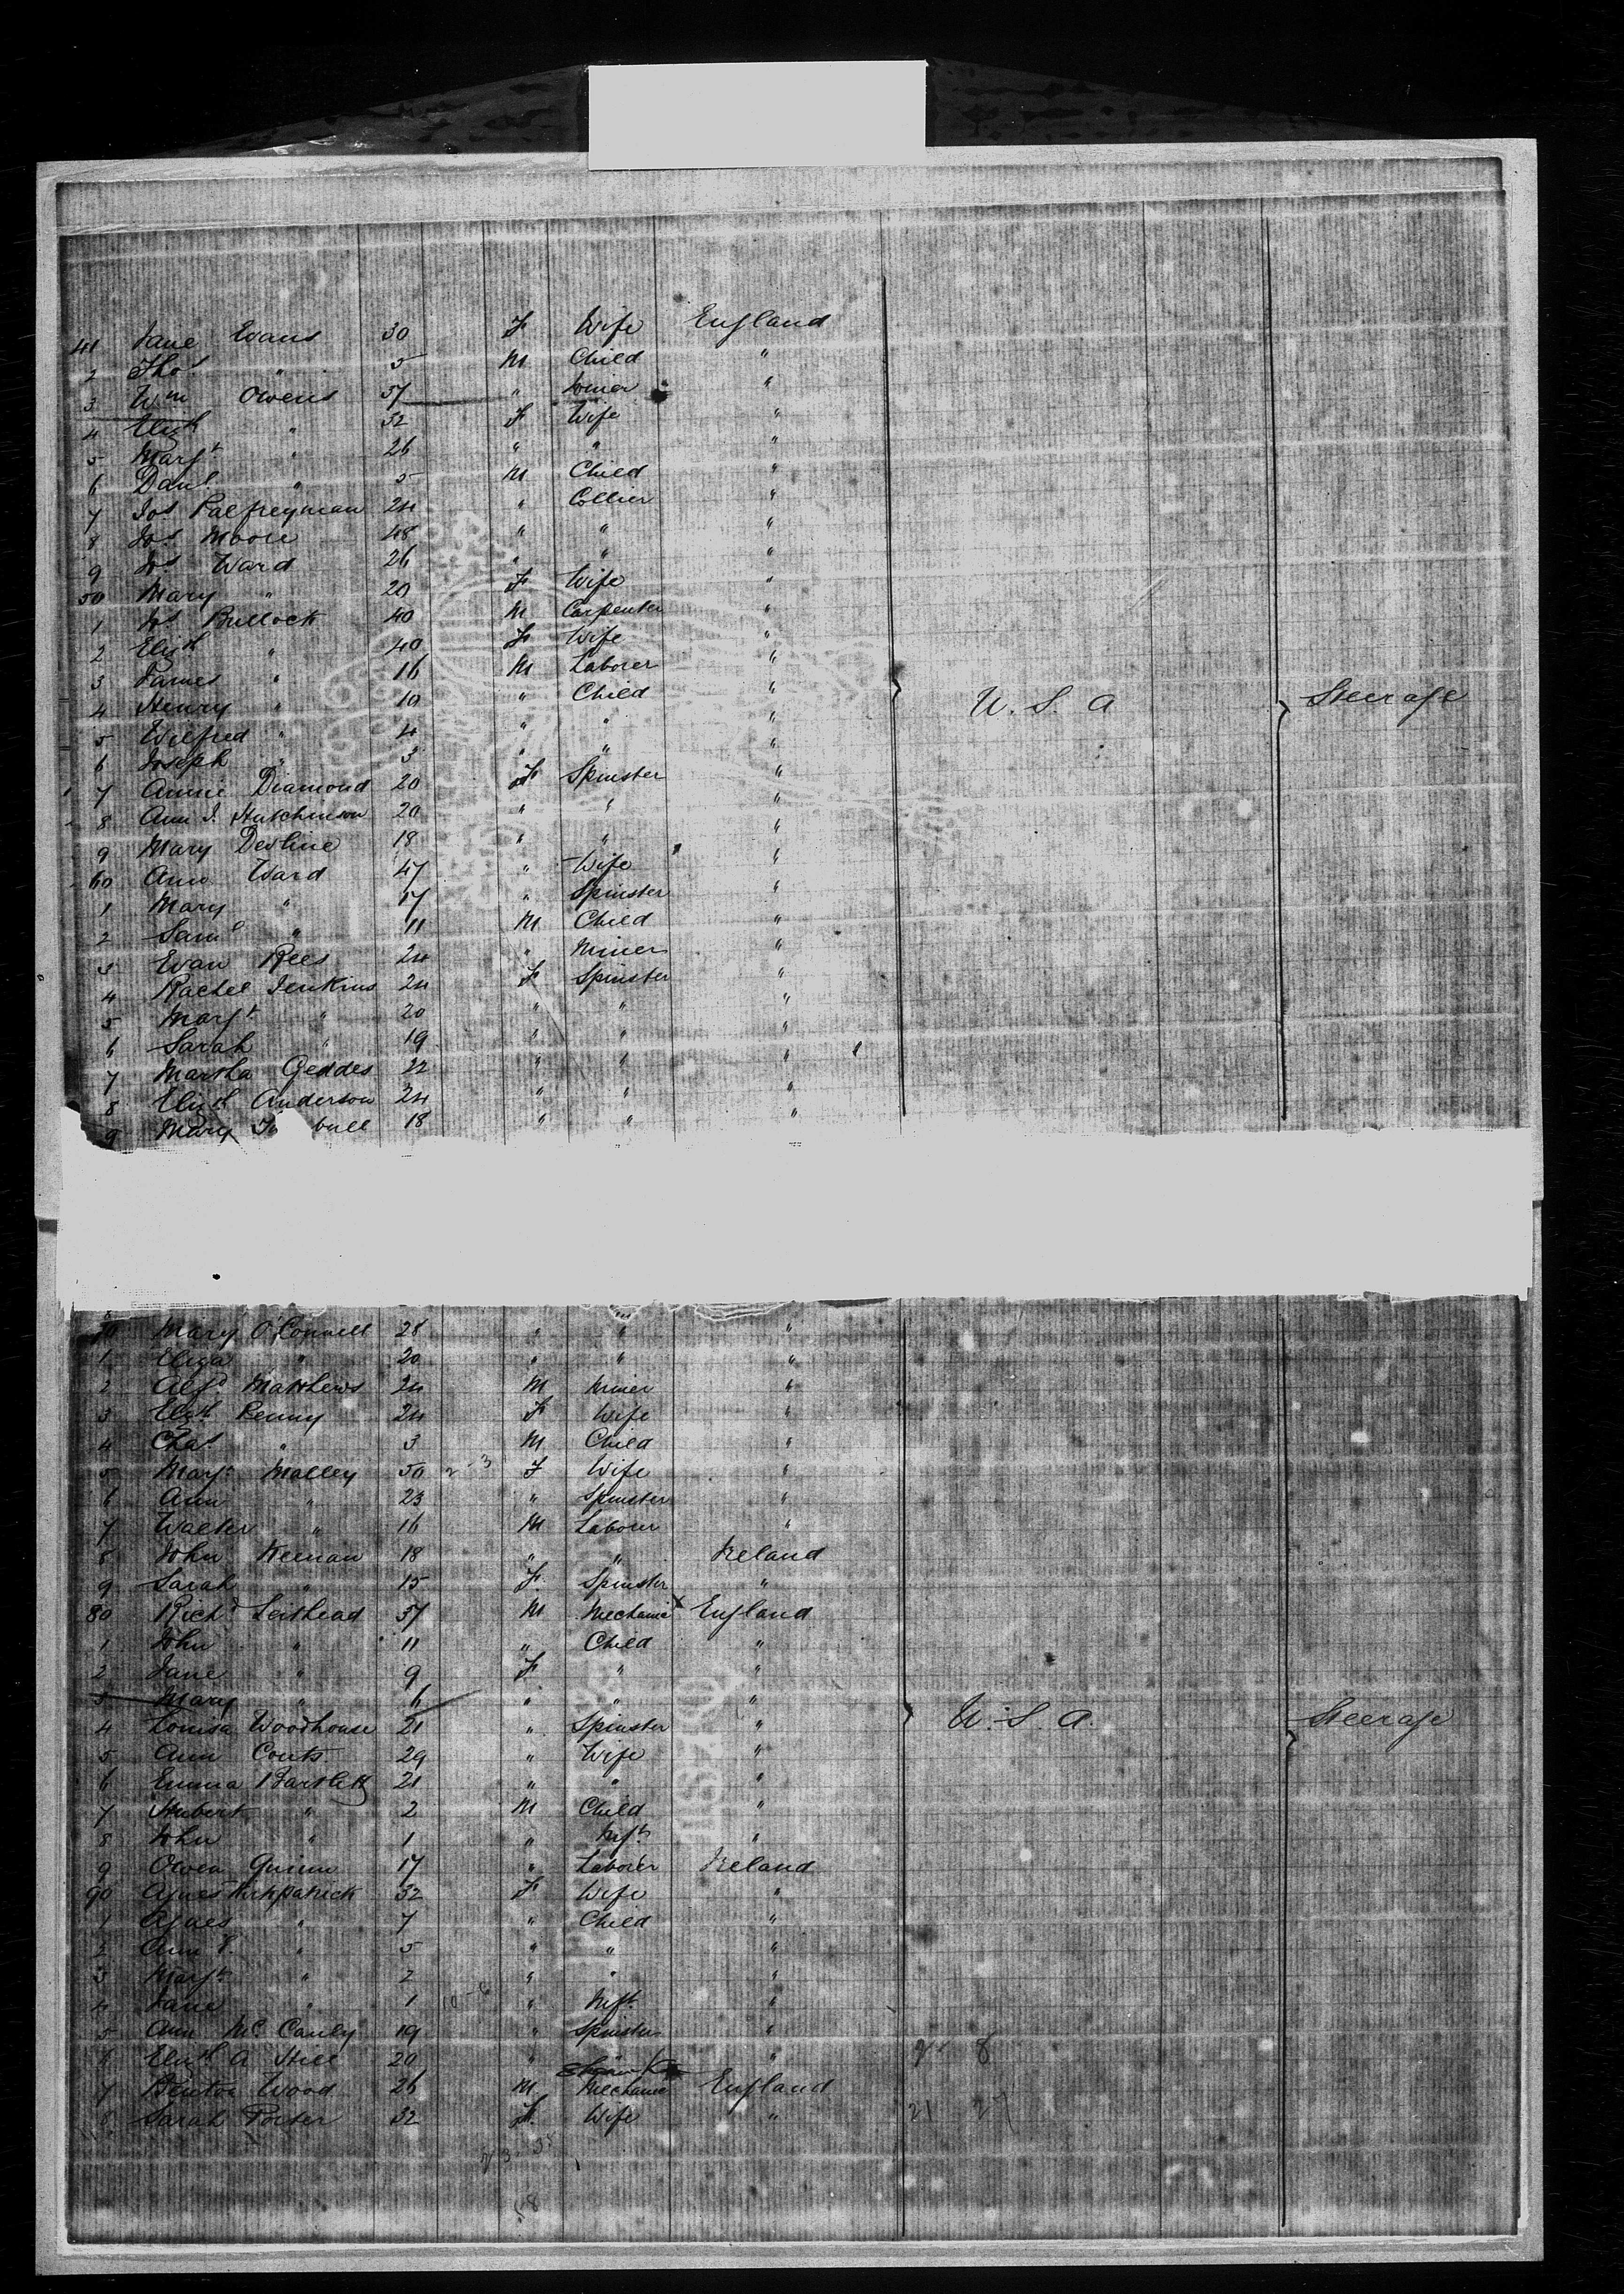 41 Jane Evans 30 F Wife England
2 Thos " 5 M Child "
3 Wm Owens 37 " Miner "
4 Elizth " 32 F Wife "
5 Margt " 26 " " "
6 Danl " 5 M Child "
7 Jos Palfreyman 24 " Collier "
8 Jos Moore 48 " " "
9 Jos Ward 26 " " "
50 Mary " 20 F Wife "
1 Jos Bullock 40 M Carpenter "
2 Elizth " 40 F Wife "
3 James " 16 M Laborer "
4 Henry " 10 " Child " U. S. A Steerage
5 Wilfred " 4 " " "
6 Joseph " 3 " " "
7 Annie Diamond 20 F Spinster "
8 Ann J. Hutchinson 20 " " "
9 Mary Devline 18 " " "
60 Ann Ward 47 " Wife "
1 Mary " 17 " Spinster "
2 Saml " 11 M Child "
3 Evan Rees 24 " Miner "
4 Rachel Jenkins 24 F Spinster "
5 Margt " 20 " " "
6 Sarah " 19 " " "
7 Martha Geddes 22 " " "
8 Elizth Anderson 24 " " "
9 Mary bull 18 " " "
70 Mary O'Connell 28 " " "
1 Eliza " 20 " " "
2 Alfd Matthews 24 M Miner "
3 Elizth Penny 24 F Wife "
4 Chas " 3 M Child "
5 Margt Malley 50 F Wife "
6 Ann " 23 " Spinster "
7 Walter " 16 M Laborer "
8 John Keenan 18 " " Ireland
9 Sarah " 15 F. Spinster "
80 Richd Leithead 37 M Mechanic England
1 John " 11 " Child "
2 Jane " 9 F " "
3 Mary " 6 " " "
4 Louisa Woodhouse 21 " Spinster " U. S. A. Steerage
5 Ann Couts 29 " Wife "
6 Emma Bartlett 21 " " "
7 Hubert " 2 M Child "
8 John " 1 " Inft "
9 Owen Quinn 17 " Laborer Ireland
90 Agnes Kirkpatrick 32 F Wife "
1 Agnes " 7 " Child "
2 Ann " 5 " " "
3 Margt " 2 " " "
4 Jane " 1 " Inft "
5 Ann Mc Cauly 19 " Spinster "
6 Elizth A Hill 20 " " "
7 Benton Wood 26 M Mechanic England
8 Sarah Porter 32 F. Wife "